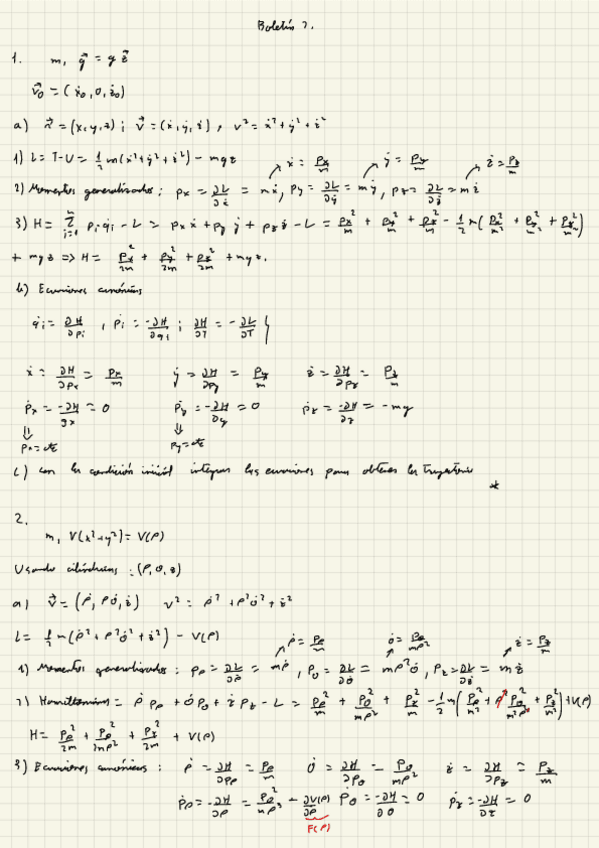 Boletín 7.
1. m, \vec{g} = g \vec{z}
\vec{v}_0 = (ẋ_0, 0, ż_0)
a) \vec{r} = (x, y, z); \vec{v} = (ẋ, ẏ, ż), v² = ẋ² + ẏ² + ż²
1) L = T - U = 1/2 m(ẋ² + ẏ² + ż²) - mgz
ẋ = p_x/m ẏ = p_y/m ż = p_z/m
2) Momentos generalizados: p_x = ∂L/∂ẋ = mẋ, p_y = ∂L/∂ẏ = mẏ, p_z = ∂L/∂ż = mż
3) H = Σ_{i=1}^{n} p_i q̇_i - L = p_x ẋ + p_y ẏ + p_z ż - L = p_x²/m + p_y²/m + p_z²/m - 1/2 m(p_x²/m² + p_y²/m² + p_z²/m²)
+ mgz => H = p_x²/2m + p_y²/2m + p_z²/2m + mgz.
b) Ecuaciones canónicas
q̇_i = ∂H/∂p_i, ṗ_i = -∂H/∂q_i; ∂H/∂T = -∂L/∂T }
ẋ = ∂H/∂p_x = p_x/m ẏ = ∂H/∂p_y = p_y/m ż = ∂H/∂p_z = p_z/m
ṗ_x = -∂H/∂x = 0 ṗ_y = -∂H/∂y = 0 ṗ_z = -∂H/∂z = -mg
⇓ ⇓
p_x = cte p_y = cte
c) con la condición inicial integrar las ecuaciones para obtener la trayectoria
*
2.
m, V(x² + y²) = V(ρ)
Usando cilíndricas: (ρ, θ, z)
a) \vec{v} = (ρ̇, ρθ̇, ż) v² = ρ̇² + ρ²θ̇² + ż²
L = 1/2 m(ρ̇² + ρ²θ̇² + ż²) - V(ρ)
ρ̇ = p_ρ/m θ̇ = p_θ/mρ² ż = p_z/m
1) Momentos generalizados: p_ρ = ∂L/∂ρ̇ = mρ̇, p_θ = ∂L/∂θ̇ = mρ²θ̇, p_z = ∂L/∂ż = mż
2) Hamiltoniano = ρ̇ p_ρ + θ̇ p_θ + ż p_z - L = p_ρ²/m + p_θ²/mρ² + p_z²/m - 1/2 m(p_ρ²/m² + ρ² p_θ²/m²ρ⁴ + p_z²/m²) + V(ρ)
H = p_ρ²/2m + p_θ²/2mρ² + p_z²/2m + V(ρ)
3) Ecuaciones canónicas: ρ̇ = ∂H/∂p_ρ = p_ρ/m θ̇ = ∂H/∂p_θ = p_θ/mρ² ż = ∂H/∂p_z = p_z/m
ṗ_ρ = -∂H/∂ρ = p_θ²/mρ³ - ∂V(ρ)/∂ρ ṗ_θ = -∂H/∂θ = 0 ṗ_z = -∂H/∂z = 0
F(ρ)